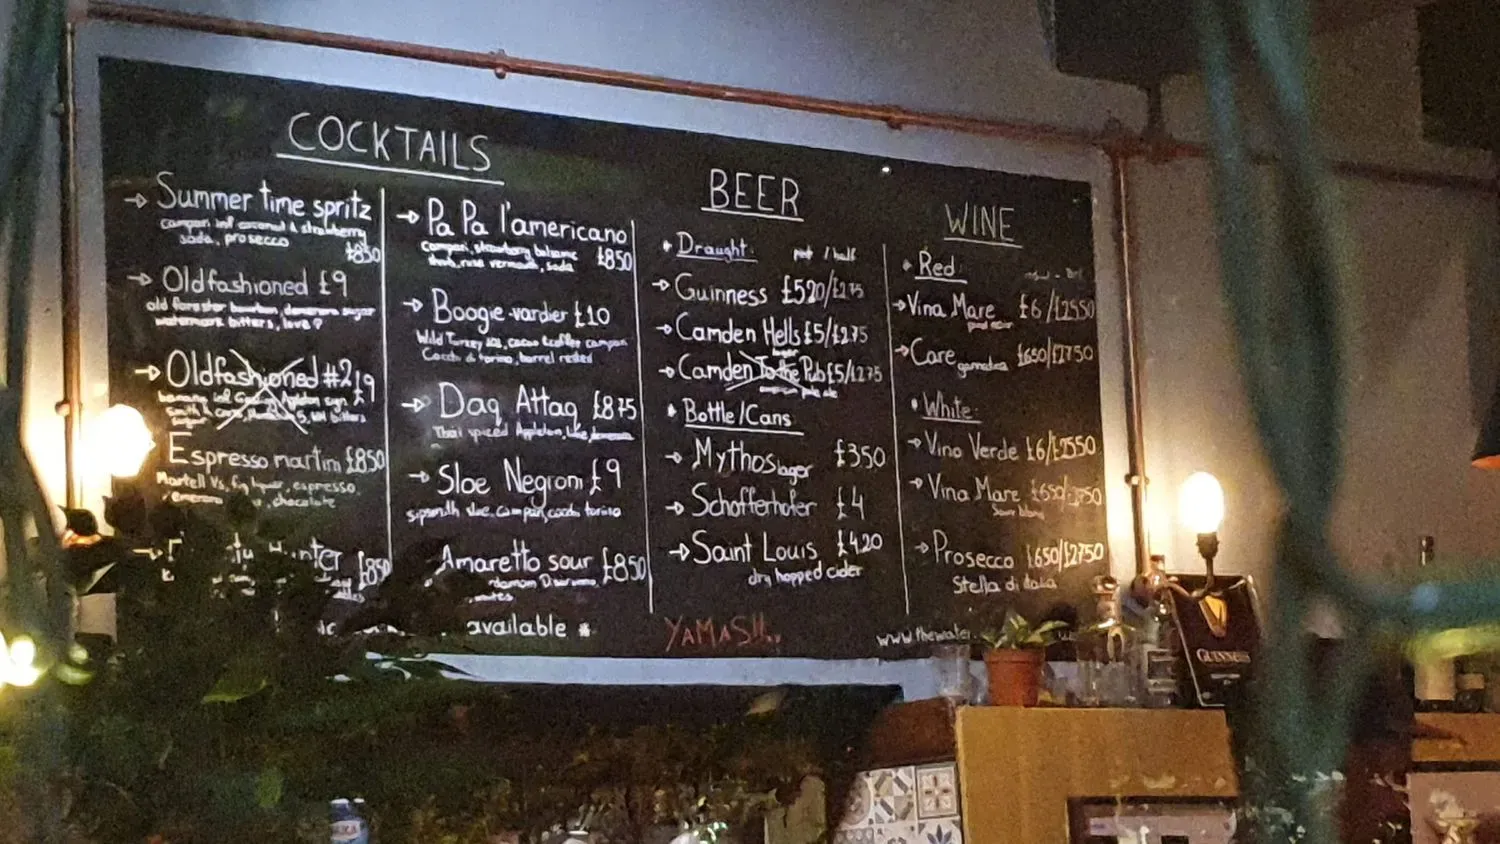 COCKTAILS
→ Summer time spritz
campari inf coconut & strawberry
soda, prosecco
£850
→ Oldfashioned £9
old forester bourbon, demerara sugar
watermark bitters, love?
→ Oldfashioned #2 £9
banana inf
Espresso martini £850
Martell Vs, fig liquor, espresso
, chocolate
£850
→ Pa Pa l'americano
Campari, strawberry balsamic £850
shrub, rose vermouth, soda
→ Boogie-vardier £10
Wild Turkey 101, cacao & coffee campari
Cocchi di torino, barrel rested
→ Daq Attaq £875
Thai spiced Appleton, lime, demerara
→ Sloe Negroni £9
sipsmith sloe, campari, cocchi torino
Amaretto sour £850
available *
BEER
• Draught: pint / half
→ Guinness £520/£275
→ Camden Hells £5/£275
lager
→ Camden To the Pub £5/£275
american pale ale
• Bottle/Cans
→ Mythos lager £350
→ Schofferhofer £4
→ Saint Louis £4.20
dry hopped cider
YAMAS!!..
WINE
• Red:
→ Vina Mare £6/£2550
pinot noir
→ Care £650/£2750
garnacha
• White:
→ Vino Verde £6/£2550
→ Vina Mare £650/£2750
Sauv blanc
→ Prosecco £650/£2750
Stella di italia
GUINNESS